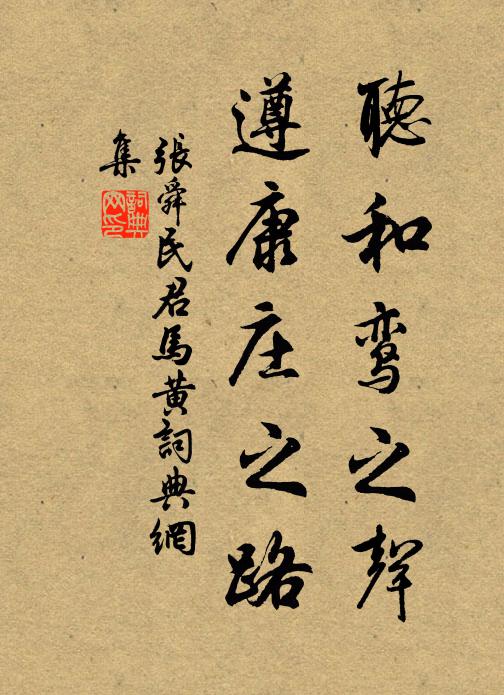 聽和鸾之聲
遵康庄之路
張舜民君馬黃詞典網
集
詞典网印